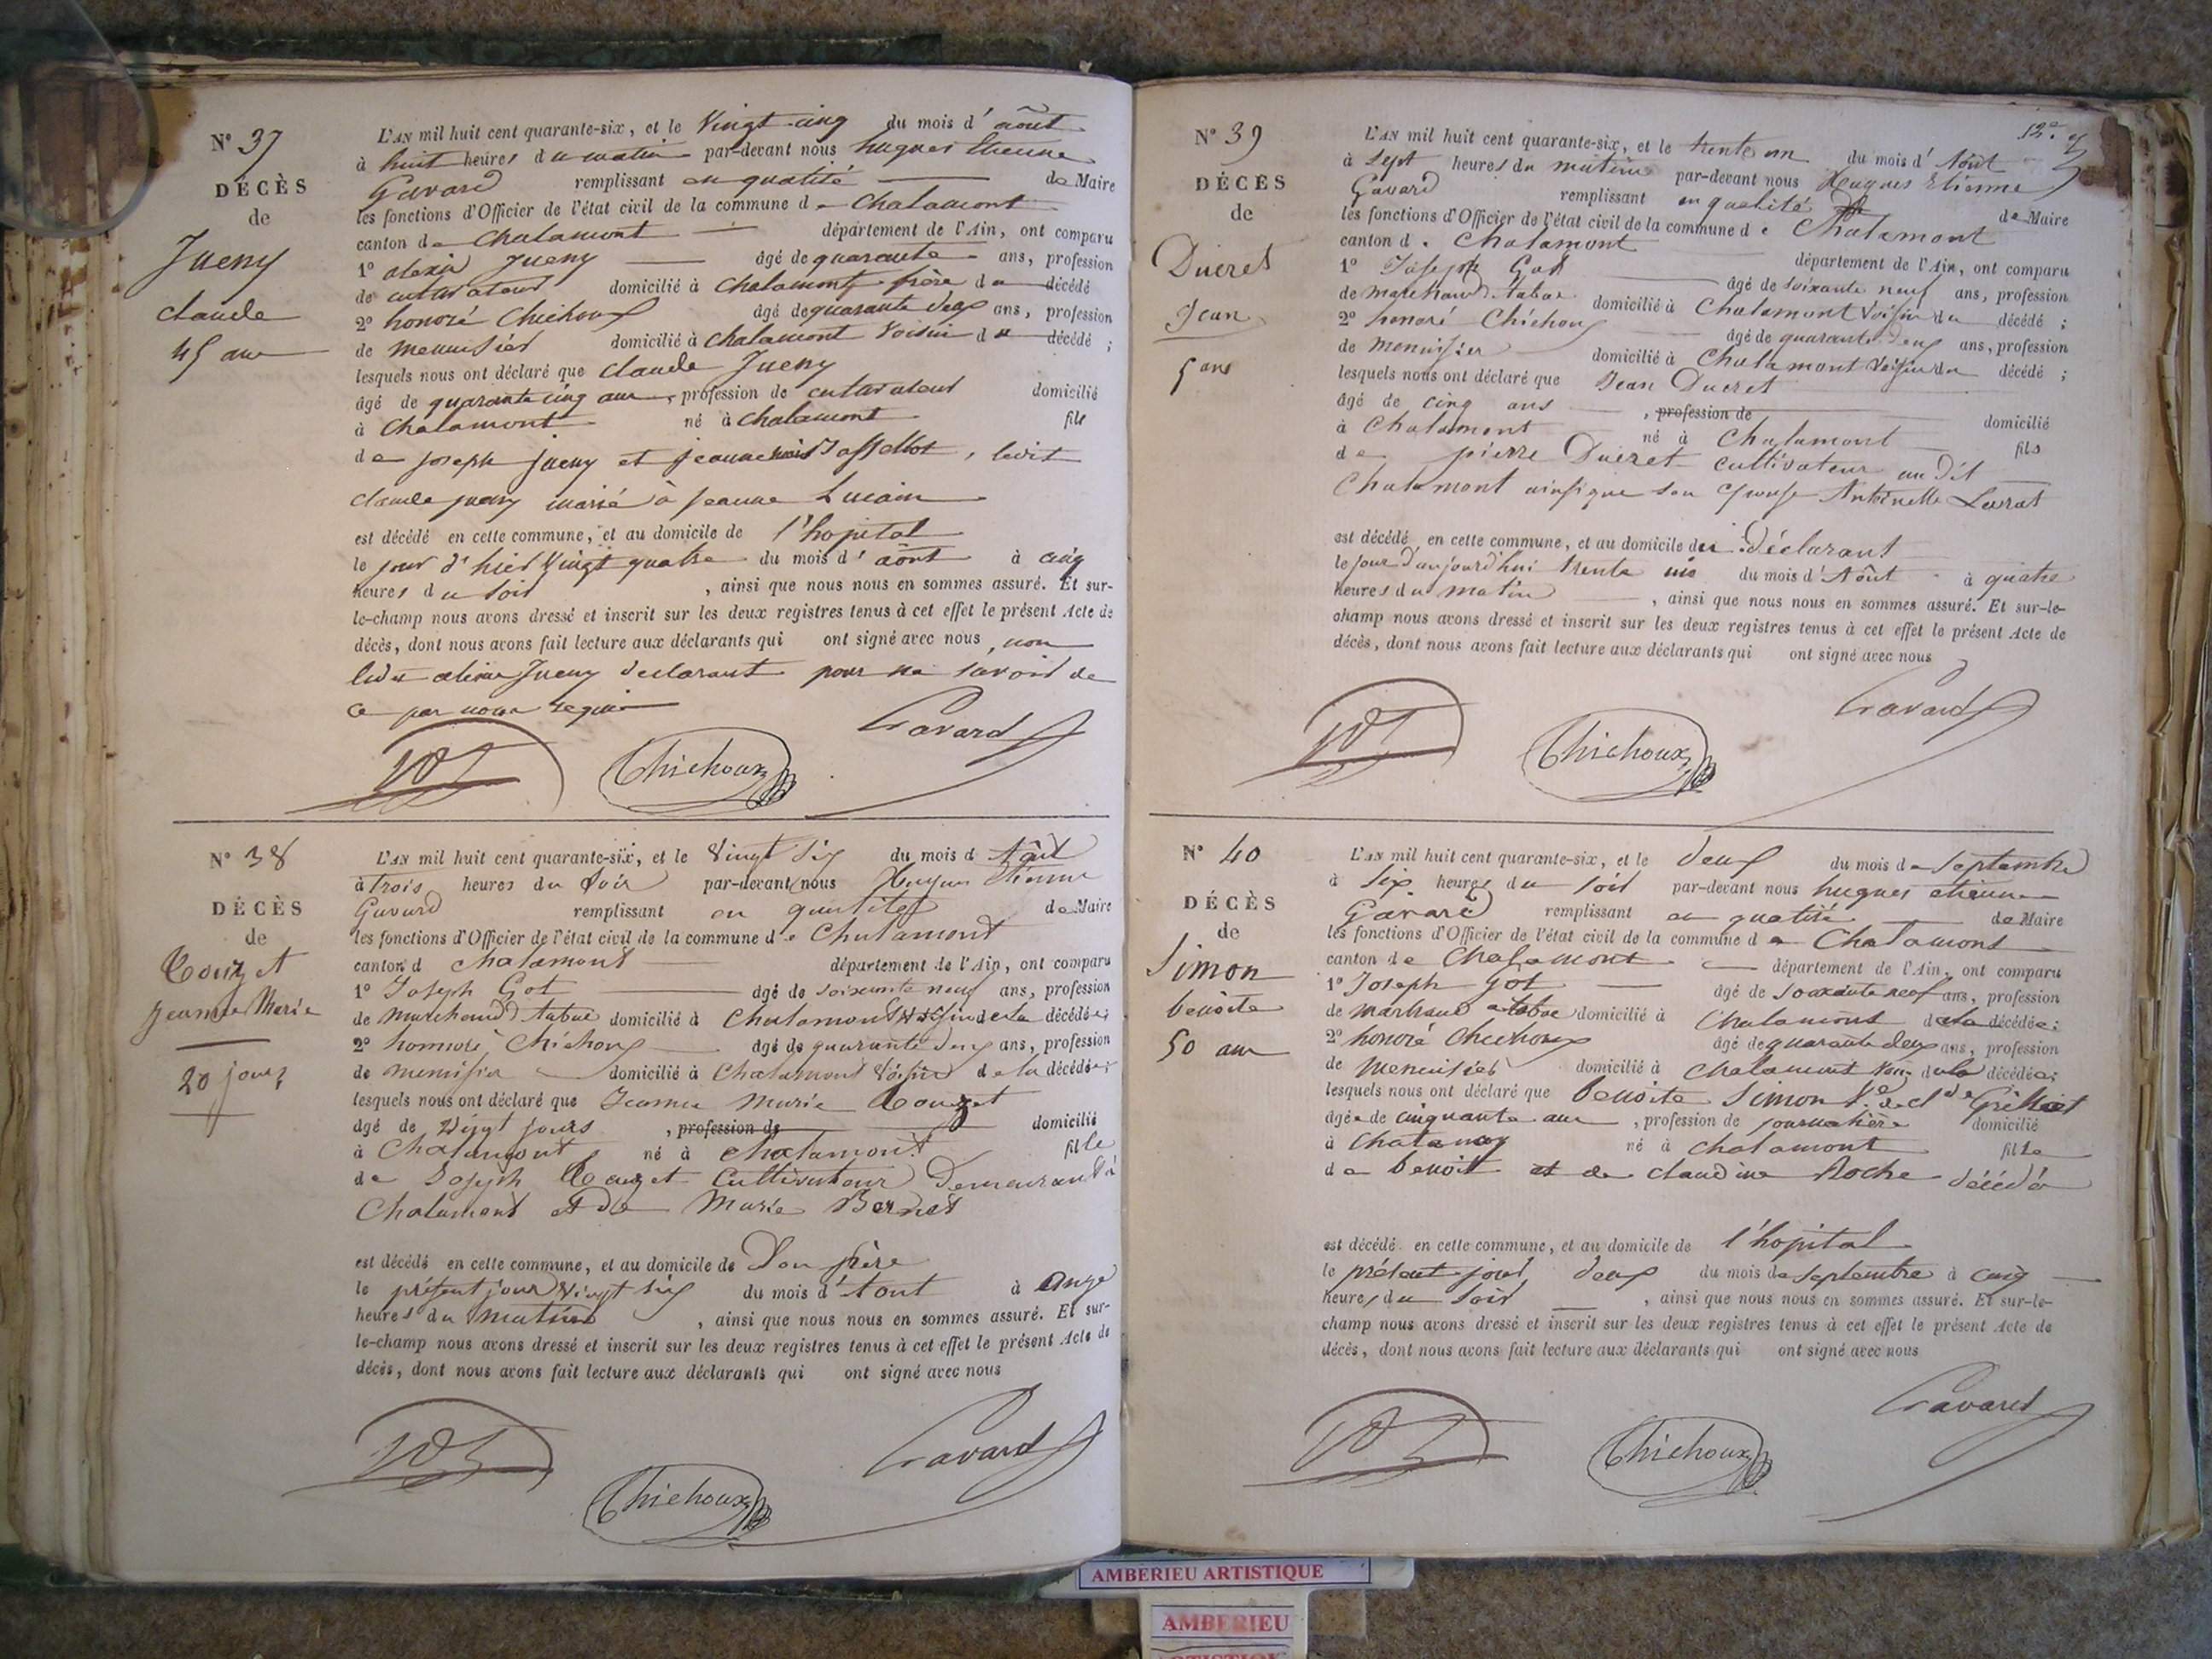 N° 37
DÉCÈS
de
Jueny
claude
45 ans
L'AN mil huit cent quarante-six, et le Vingt cinq du mois d' août
à huit heures du matin par-devant nous hugues Etienne
Gavard remplissant en qualité de Maire
les fonctions d'Officier de l'état civil de la commune de Chalamont
canton de Chalamont département de l'Ain, ont comparu
1° alexis Jueny âgé de quarante ans, profession
de cultivateur domicilié à Chalamont frère du décédé
2° honoré Chichoux âgé de quarante deux ans, profession
de menuisier domicilié à Chalamont Voisin du décédé ;
lesquels nous ont déclaré que claude Jueny
âgé de quarante cinq ans, profession de cultivateur domicilié
à Chalamont né à Chalamont fils
de joseph jueny et jeanne marie , ledit
claude jueny marié à jeanne Lucain
est décédé en cette commune, et au domicile de l'hopital
le jour d'hier Vingt quatre du mois d' août à cinq
heures du soir , ainsi que nous nous en sommes assuré. Et sur-
le-champ nous avons dressé et inscrit sur les deux registres tenus à cet effet le présent Acte de
décès, dont nous avons fait lecture aux déclarants qui ont signé avec nous, non
ledit Jueny declarant pour ne savoir de
ce par nous requis
Gavard
Chichoux
N° 38
DÉCÈS
de
Couzet
Jeanne Marie
20 jours
L'AN mil huit cent quarante-six, et le Vingt Six du mois d Août
à trois heures du Soir par-devant nous Hugues Etienne
Gavard remplissant en qualité de Maire
les fonctions d'Officier de l'état civil de la commune de Chalamont
canton d Chalamont département de l'Ain, ont comparu
1° Joseph Got âgé de soixante neuf ans, profession
de Marchand tabac domicilié à Chalamont Voisin de la décédée;
2° honnoré Chichoux âgé de quarante deux ans, profession
de menuisier domicilié à Chalamont Voisin de la décédée;
lesquels nous ont déclaré que Jeanne Marie Couzet
âgé de Vingt jours , profession de domicilié
à Chalamont né à Chalamont fille
de Joseph Couzet Cultivateur Demeurant à
Chalamont et de Marie Bernet
est décédé en cette commune, et au domicile de Son père
le présent jour Vingt six du mois d' Aout à onze
heures du matin , ainsi que nous nous en sommes assuré. Et sur-
le-champ nous avons dressé et inscrit sur les deux registres tenus à cet effet le présent Acte de
décès, dont nous avons fait lecture aux déclarants qui ont signé avec nous
Gavard
Chichoux
N° 39
DÉCÈS
de
Ducret
Jean
5 ans
L'AN mil huit cent quarante-six, et le trente un du mois d' Août
à Sept heures du matin par-devant nous Hugues Etienne
Gavard remplissant en qualité de Maire
les fonctions d'Officier de l'état civil de la commune de Chalamont
canton d. Chalamont département de l'Ain, ont comparu
1° Joseph Got âgé de soixante neuf ans, profession
de marchand tabac domicilié à Chalamont Voisin du décédé ;
2° honoré Chichoux âgé de quarante deux ans, profession
de menuisier domicilié à Chalamont Voisin du décédé ;
lesquels nous ont déclaré que Jean Ducret
âgé de cinq ans , profession de domicilié
à Chalamont né à Chalamont fils
de pierre Ducret cultivateur au Dit
Chalamont ainsi que son Epouse Antoinette
est décédé en cette commune, et au domicile du Déclarant
le jour d'aujourd'hui trente un du mois d' Août à quatre
heures du matin , ainsi que nous nous en sommes assuré. Et sur-le-
champ nous avons dressé et inscrit sur les deux registres tenus à cet effet le présent Acte de
décès, dont nous avons fait lecture aux déclarants qui ont signé avec nous
Gavard
Chichoux
N° 40
DÉCÈS
de
Simon
benoite
50 ans
L'AN mil huit cent quarante-six, et le deux du mois de Septembre
à six heures du soir par-devant nous hugues etienne
Gavard remplissant en qualité de Maire
les fonctions d'Officier de l'état civil de la commune de Chalamont
canton de Chalamont département de l'Ain, ont comparu
1° Joseph got âgé de soixante neuf ans, profession
de marchand tabac domicilié à Chalamont de la décédée;
2° honoré Chichoux âgé de quarante deux ans, profession
de menuisier domicilié à Chalamont de la décédée;
lesquels nous ont déclaré que benoite Simon
âgée de cinquante ans , profession de journalière domicilié
à Chatenay né à Chalamont fille
de benoit et de claudine Roche décédés
est décédé en cette commune, et au domicile de l'hopital
le présent jour deux du mois de septembre à cinq
heures du soir , ainsi que nous nous en sommes assuré. Et sur-le-
champ nous avons dressé et inscrit sur les deux registres tenus à cet effet le présent Acte de
décès, dont nous avons fait lecture aux déclarants qui ont signé avec nous
Gavard
Chichoux
AMBERIEU ARTISTIQUE
AMBERIEU
ARTISTIQUE